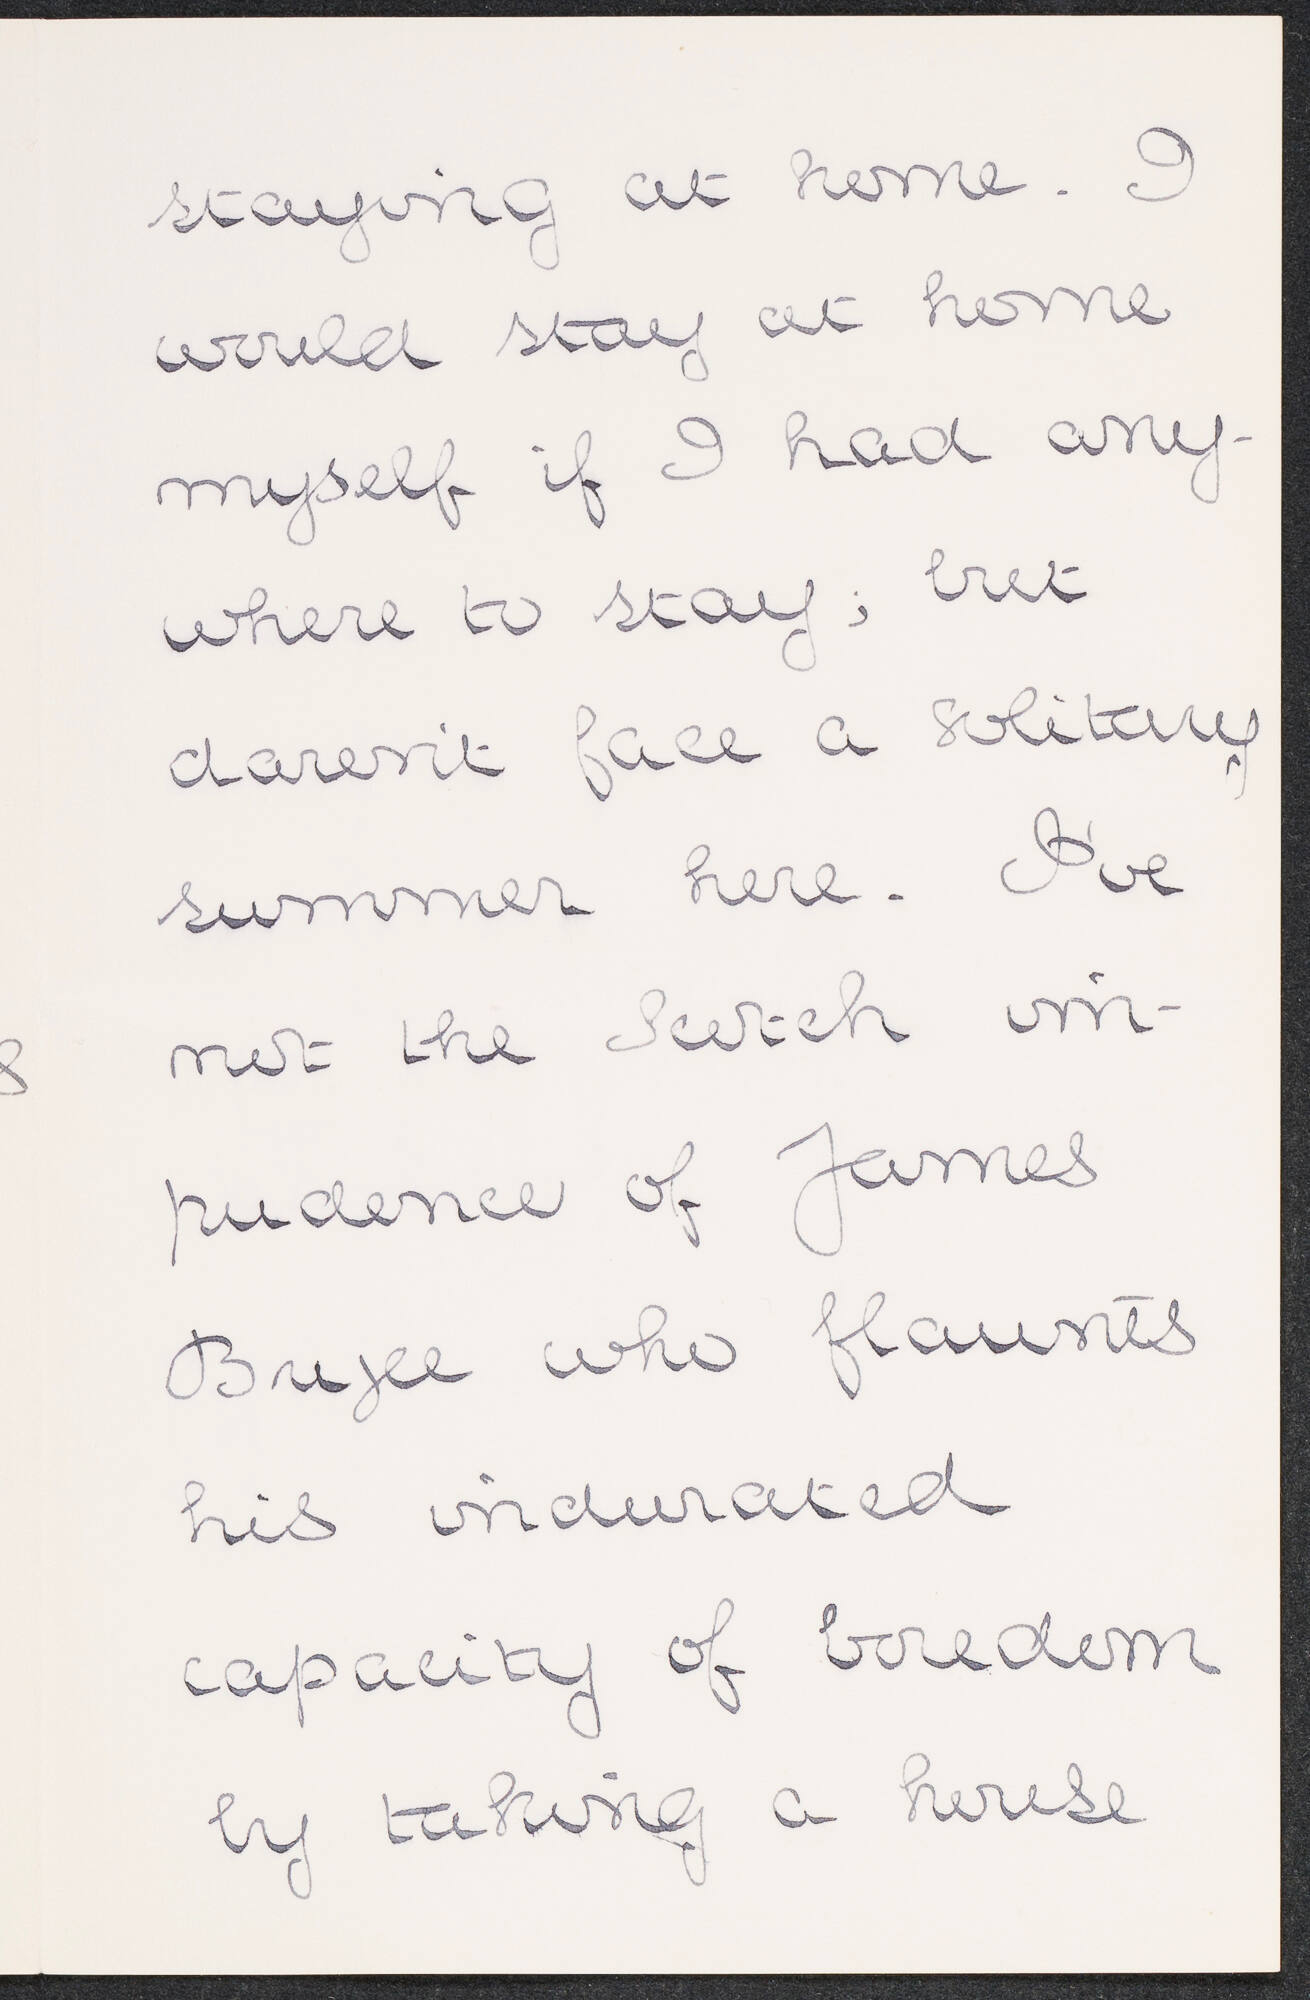 staying at home. I
would stay at home
myself if I had any-
where to stay; but
daren't face a solitary
summer here. I've
not the Scotch im-
pudence of James
Bryce who flaunts
his indurated
capacity of boredom
by taking a house